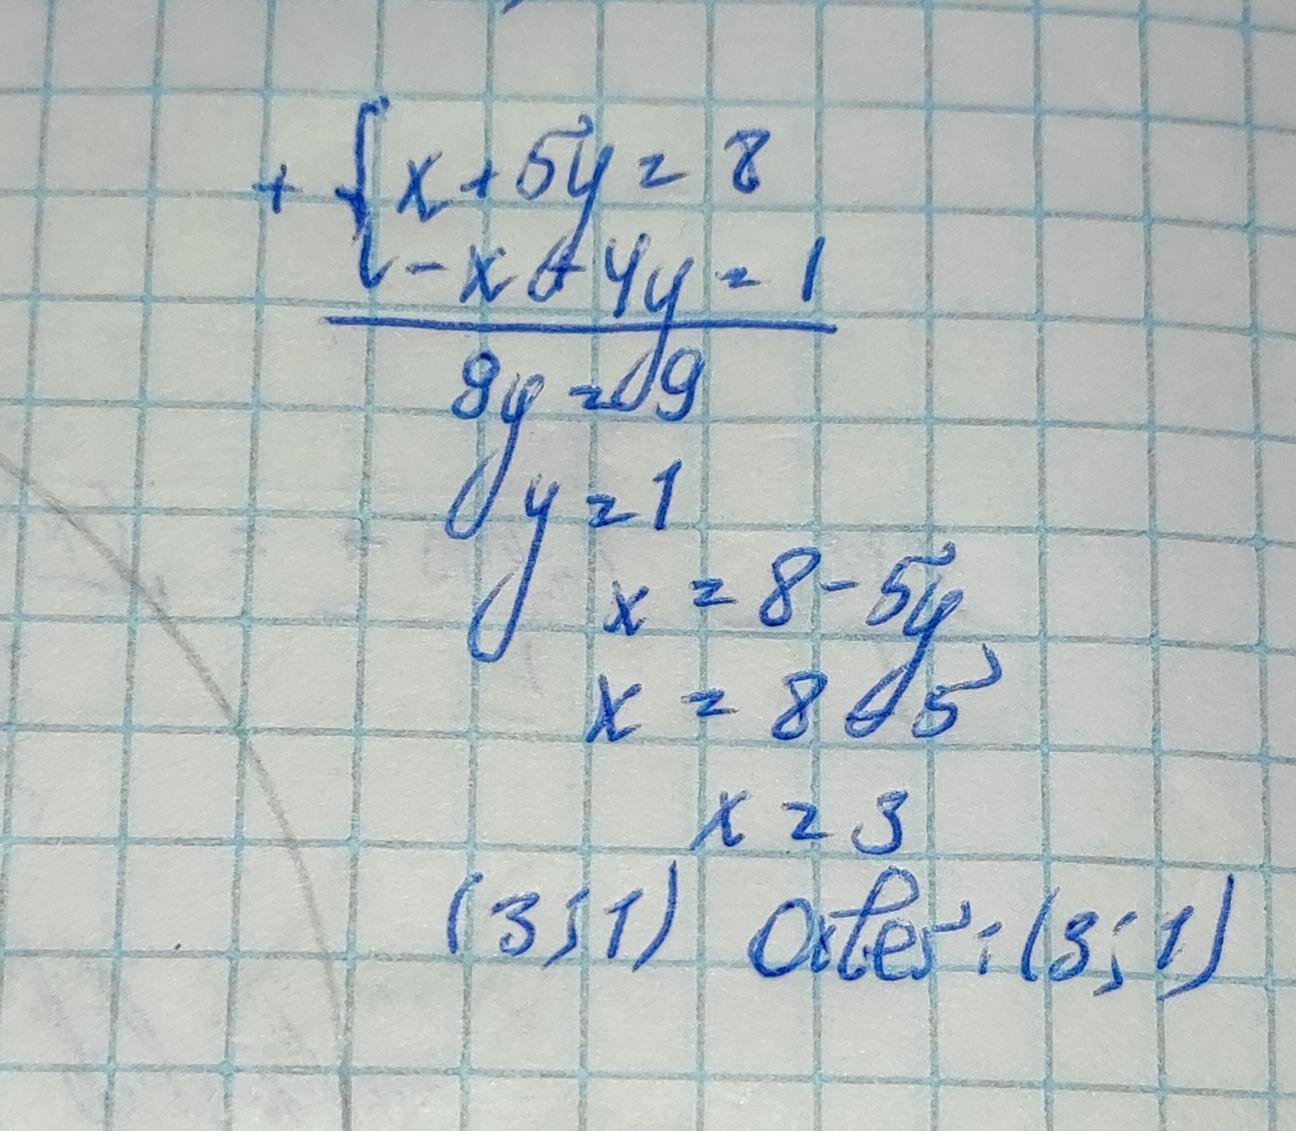 + { x + 5y = 8
- x + 4y = 1
9y = 9
y = 1
x = 8 - 5y
x = 8 - 5
x = 3
(3; 1) Ответ: (3; 1)